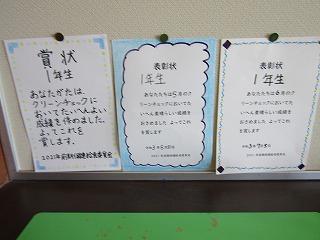 賞状
1年生
あなたがたは
クリーンチェックに
おいてたいへんよい
成績を修めました。
よってこれを
賞します。
2021年
表彰状
1年生
あなたたちは5月のク
リーンチェックにおいてた
いへん素晴らしい成績を
おさめました よってこれ
を賞します
表彰状
1年生
あなたたちは6月のク
リーンチェックにおいてた
いへん素晴らしい成績を
おさめました よってこれ
を賞します